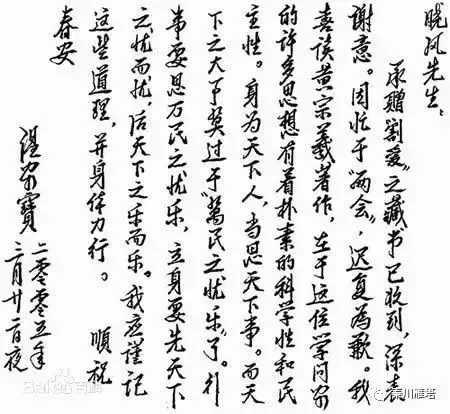 晓风先生:
承赠“割爱”之藏书已收到,深表
谢意。因忙于“两会”,迟复為歉。我
喜读黄宗羲著作,在于这位学问家
的许多思想有着朴素的科学性和民
主性。身为天下人,当思天下事。而天
下之大事莫过于“萬民之忧乐”了。行
事要思万民之忧乐,立身要先天下
之忧而忧,后天下之乐而乐。我应谨记
这些道理,并身体力行。 順祝
春安
温家寶
二零零五年
三月廿二日夜
Bai百科
川雁塔